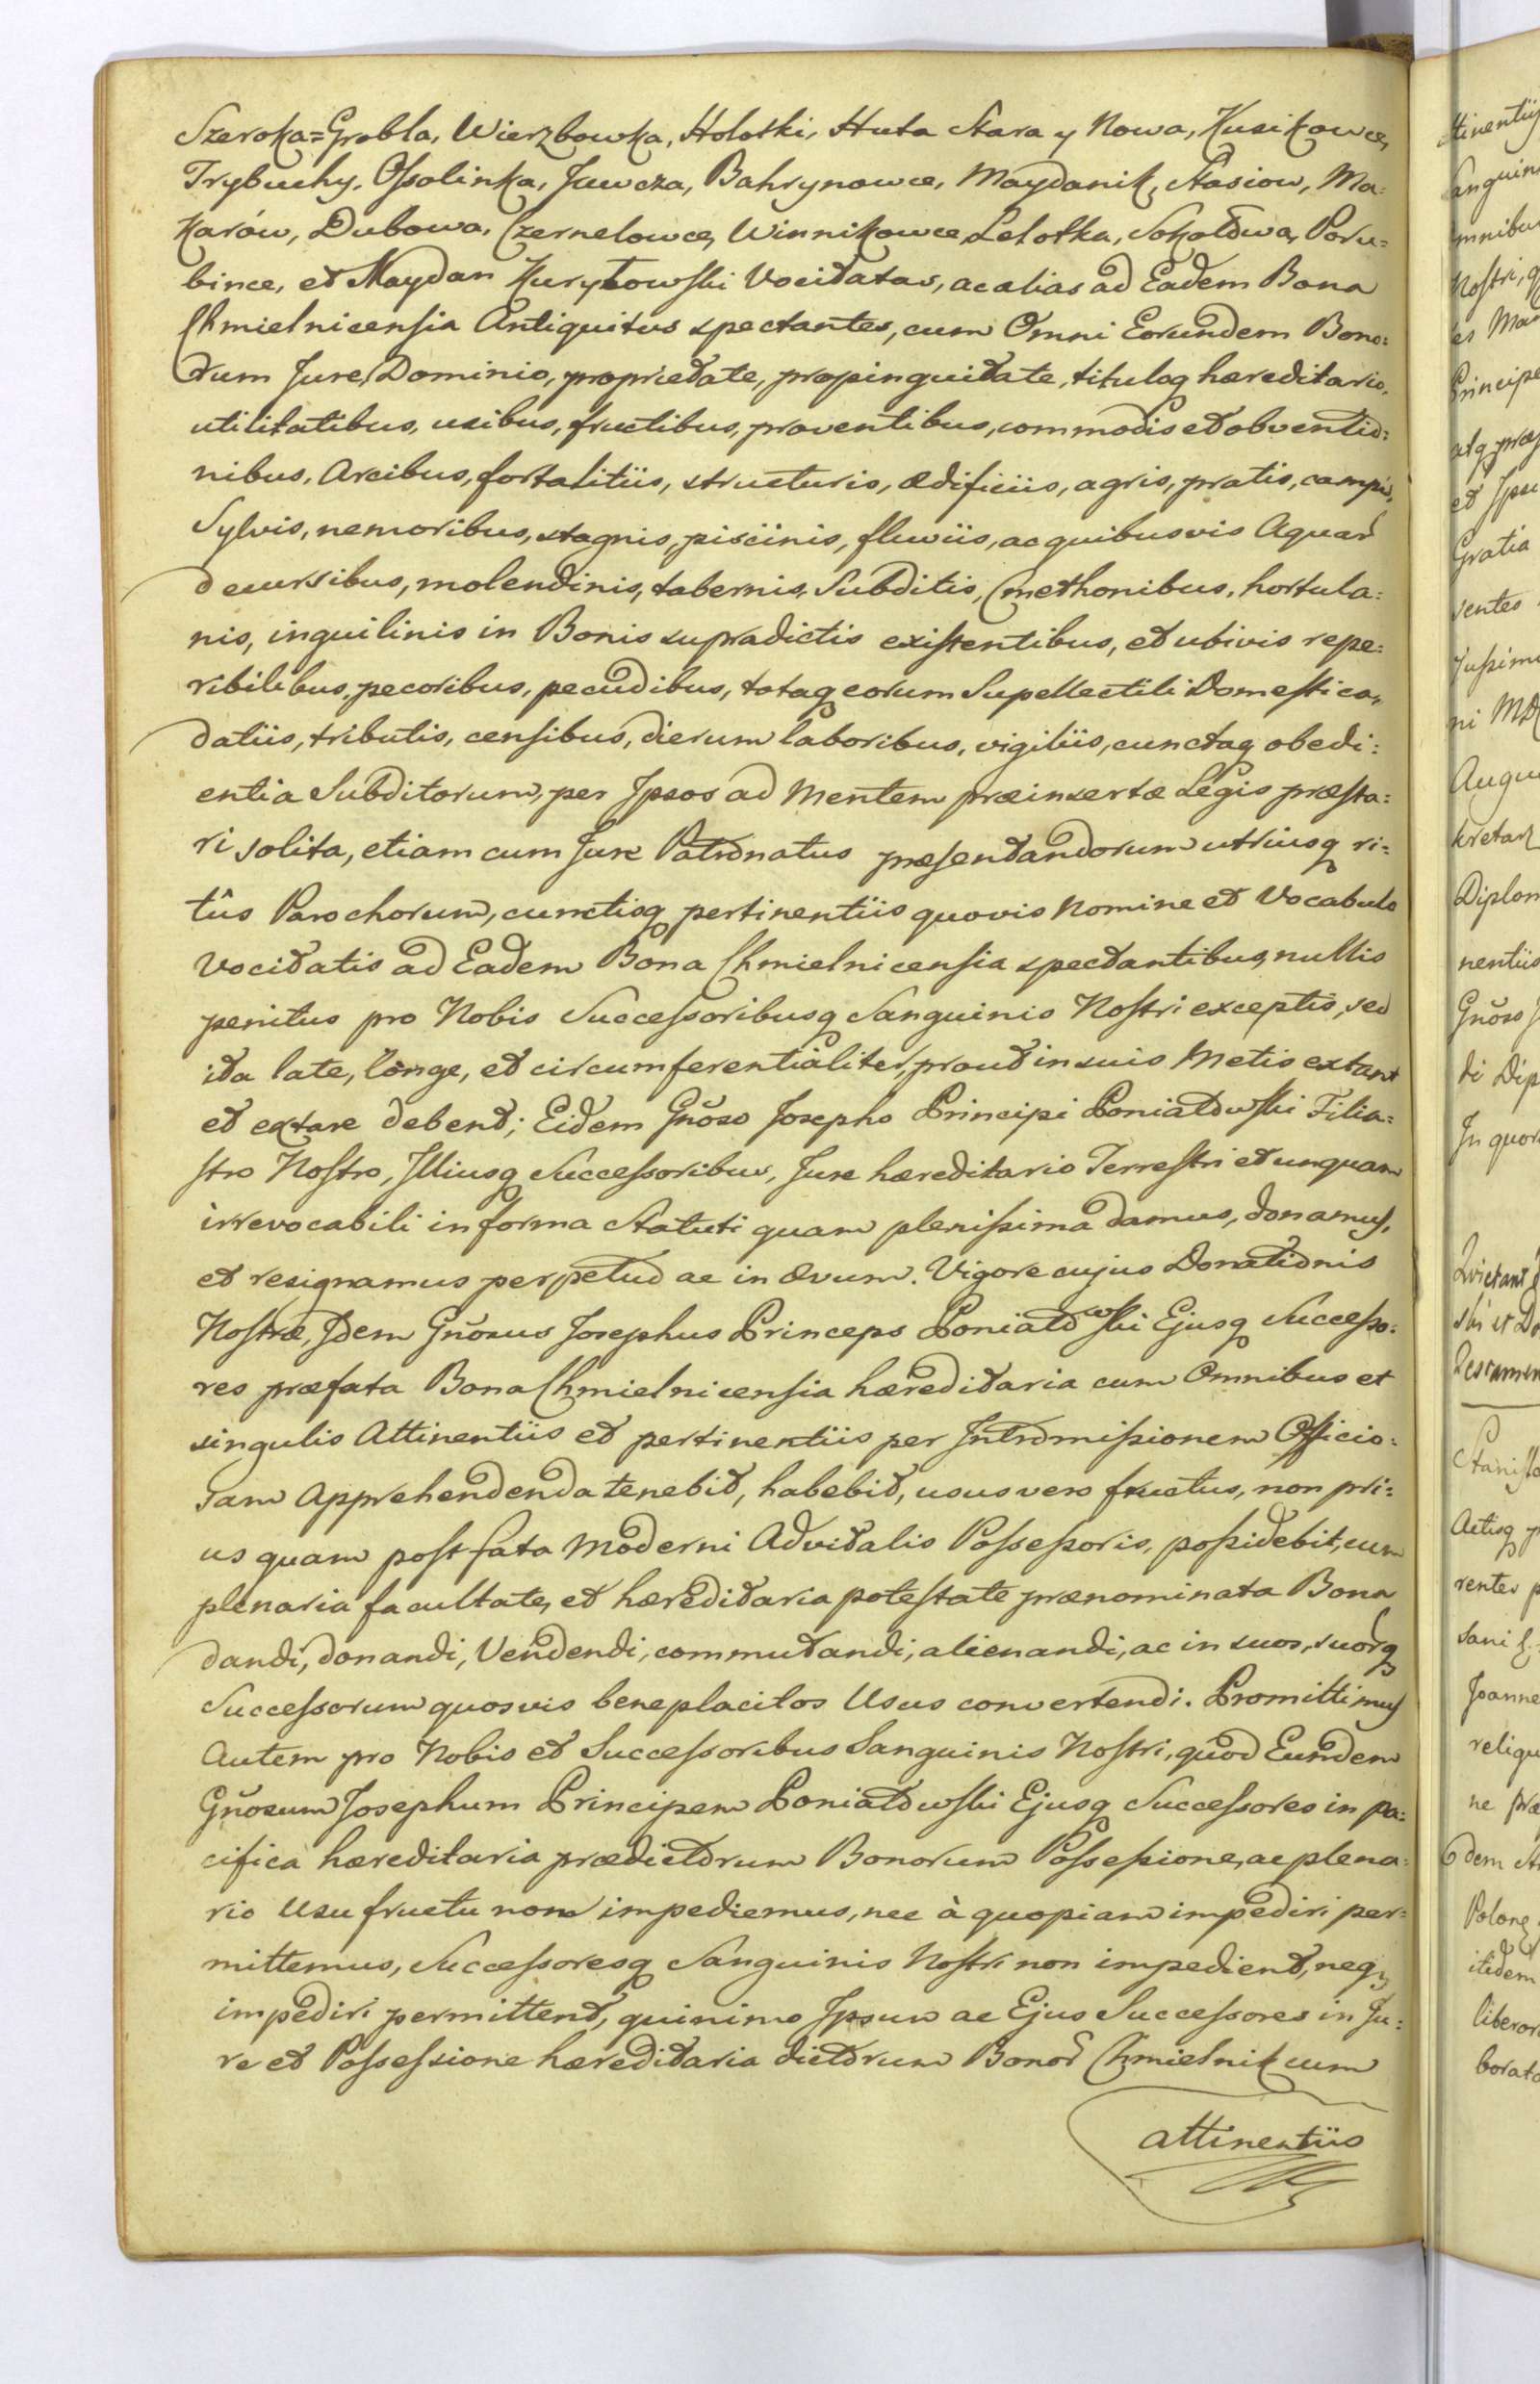 Szeroka=Grobla, Wierzbowka, Holotki, Huta Stara y Nowa, Kusikowce,
Trybuchy, Ossolinka, Jawcza, Bahrynowce, Maydanik, Stasiow, Ma=
Karów, Dubowa, Czernelowce, Winnikowce Letotka, Sokołowa, Poru=
bince, et Maydan Kuryłowski Vocitatas, ac alias ad Eadem Bona
Chmielnicensia Antiquitus spectantes, cum Omni Eorundem Bono=
rum Jure, Dominio, proprietate, propinquitate, tituloq hæreditario,
utilitatibus, usibus, fructibus, proventibus, commodis et obventio=
nibus, Arcibus, fortalitiis, structuris, ædificiis, agris, pratis, campis,
Sylvis, nemoribus, stagnis, piscinis, fluviis, ac quibusvis Aquar
decursibus, molendinis, tabernis, Subditis, Cmethonibus, hortula=
nis, inquilinis in Bonis supradictis existentibus, et ubivis repe=
ribilibus, pecoribus, pecudibus, totaq eorum Supellectili Domestica,
datiis, tributis, censibus, dierum laboribus, vigiliis, cunctaq obedi=
entia Subditorum, per Ipsos ad Mentem præinsertæ Legis præsta=
ri solita, etiam cum Jure Patronatus præsentandorum utriusq ri=
tûs Parochorum, cunctisq pertinentiis quovis Nomine et Vocabulo
Vocitatis ad Eadem Bona Chmielnicensia spectantibus, nullis
penitus pro Nobis Successoribusq Sanguinis Nostri exceptis, sed
ita late, longe, et circumferentialiter, prout in suis Metis extant
et extare debent; Eidem Gnoso Josepho Principi Poniatowski Filia=
stro Nostro, Illiusq Successoribus, Jure hæreditario Terrestri et unquam
irrevocabili in forma Statuti quam plenissima damus, donamus,
et resignamus perpetuo ac in ævum. Vigore cujus Donationis
Nostræ, Idem Gnosus Josephus Princeps Poniatowski Ejusq Successo=
res præfata Bona Chmielnicensia hæreditaria cum Omnibus et
singulis Attinentiis et pertinentiis per Intromissionem Officio=
sam Apprehendenda tenebit, habebit, usus vero fructus, non pri=
us quam post fata Moderni Advitalis Possessoris, possidebit, cum
plenaria facultate, et hæreditaria potestate prænominata Bona
dandi, donandi, Vendendi, commutandi, alienandi, ac in suos, suorq
Successorum quosvis beneplacitos Usus convertendi. Promittimus
Autem pro Nobis et Successoribus Sanguinis Nostri, quod Eundem
Gnosum Josephum Principem Poniatowski Ejusq Successores in pa=
cifica hæreditaria prædictorum Bonorum Possessione, ac plena=
rio Usufructu non impediemus, nec à quopiam impediri per=
mittemus, Successoresq Sanguinis Nostri non impedient, neq
impediri permittent, quinimo Ipsum ac Ejus Successores in Ju=
re et Possessione hæreditaria dictorum Bonor Chmielnik cum
attinentiis